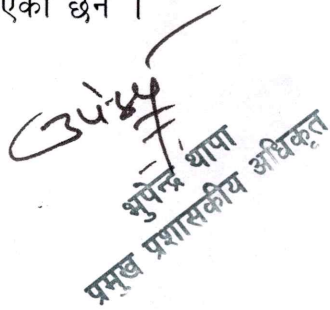 एका छैनन् ।
भुपेन्द्र थापा
प्रमुख प्रशासकीय अधिकृत